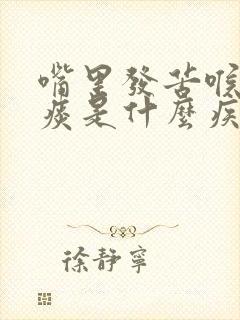 嘴里發苦喉
痰是什麼疾
徐静寧